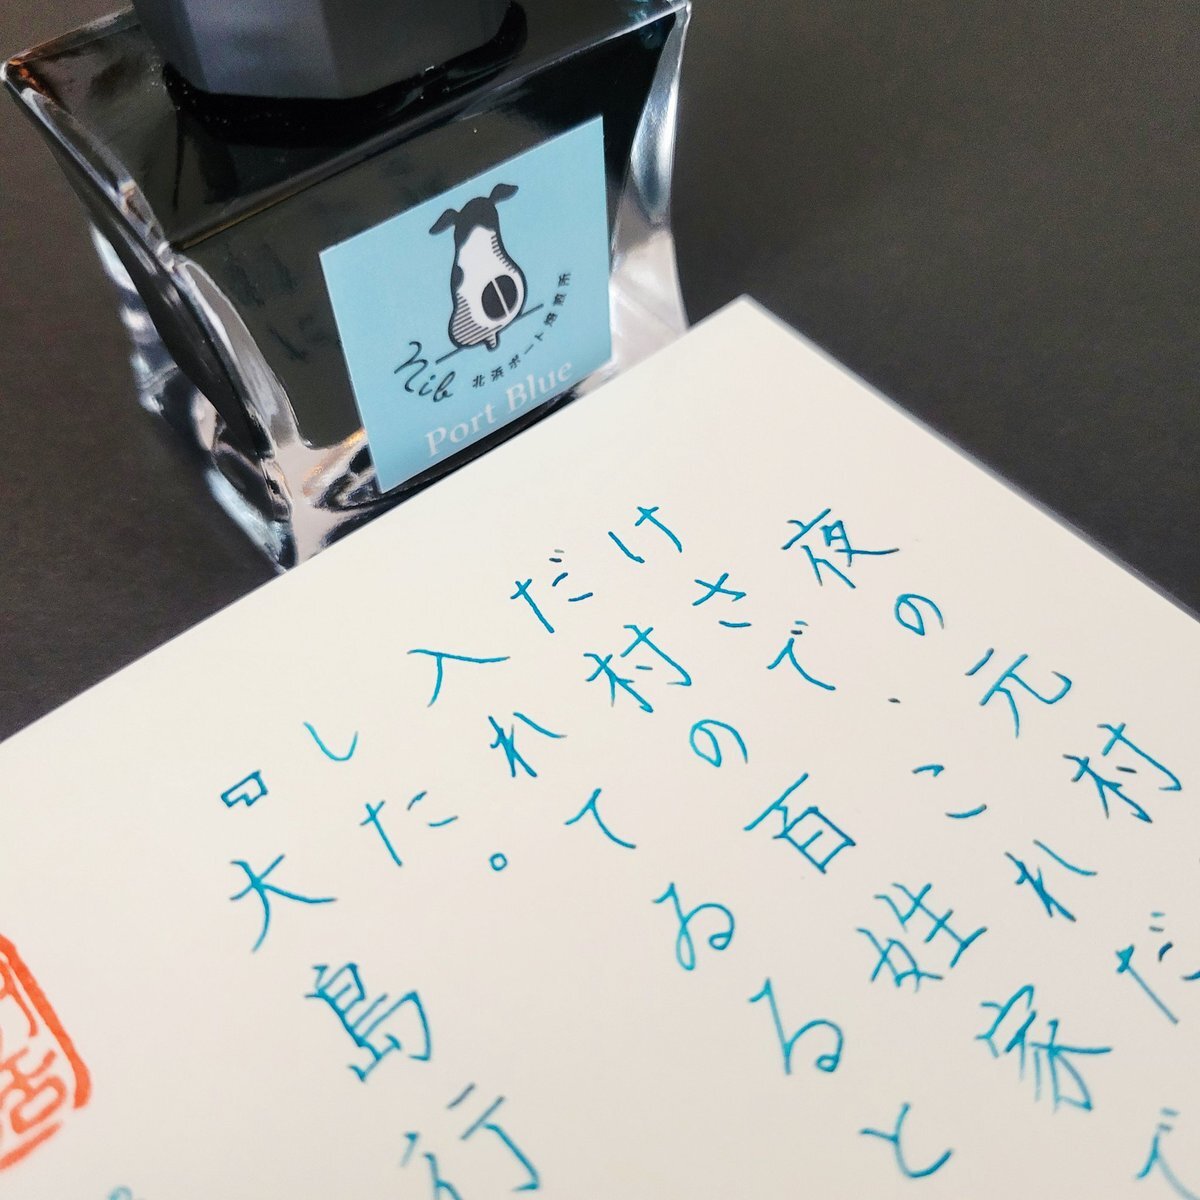 Nib
北浜ポート焙煎所
Port Blue
夜の元村
けさで、これだ
だ村の百姓家で
入れてゐると
した。
『大島行